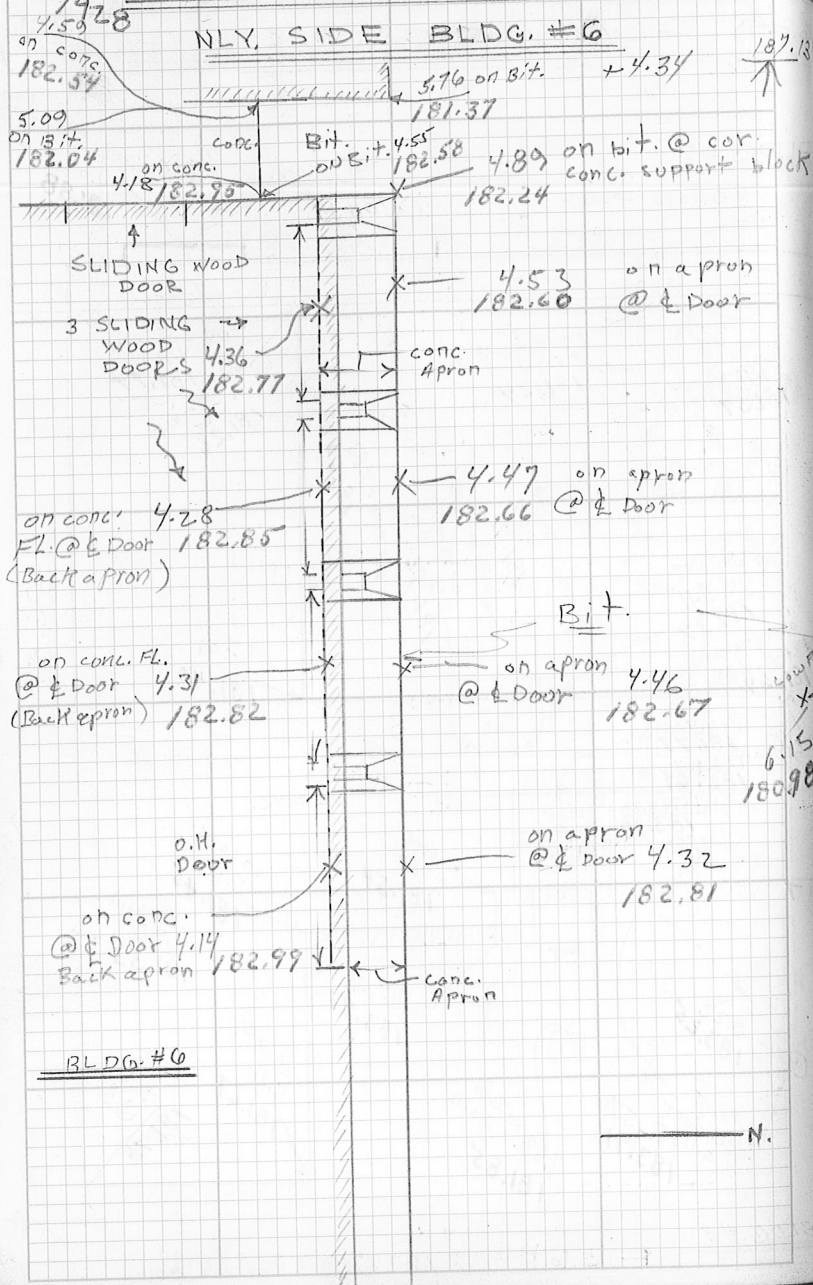 1928
NLY. SIDE BLDG. #6
4.59
on conc.
182.54
5.76 on Bit.
181.37
+4.34
187.13
5.09
on Bit.
182.04
conc.
Bit.
on Bit. 4.55
182.58
on conc.
4.18 182.95
4.89 on bit. @ cor.
conc. support block
182.24
SLIDING WOOD
DOOR
4.53 on apron
182.60 @ ℄ Door
3 SLIDING
WOOD
DOORS
4.36
182.77
conc.
Apron
4.47 on apron
182.66 @ ℄ Door
on conc. 4.28
FL. @ ℄ Door 182.85
(Back apron)
Bit.
on conc. FL.
@ ℄ Door 4.31
(Back apron) 182.82
on apron
@ ℄ Door 4.46
182.67
6.15
180.98
O.H.
Door
on apron
@ ℄ Door 4.32
182.81
on conc.
@ ℄ Door 4.14
Back apron 182.99
conc.
Apron
BLDG. #6
N.